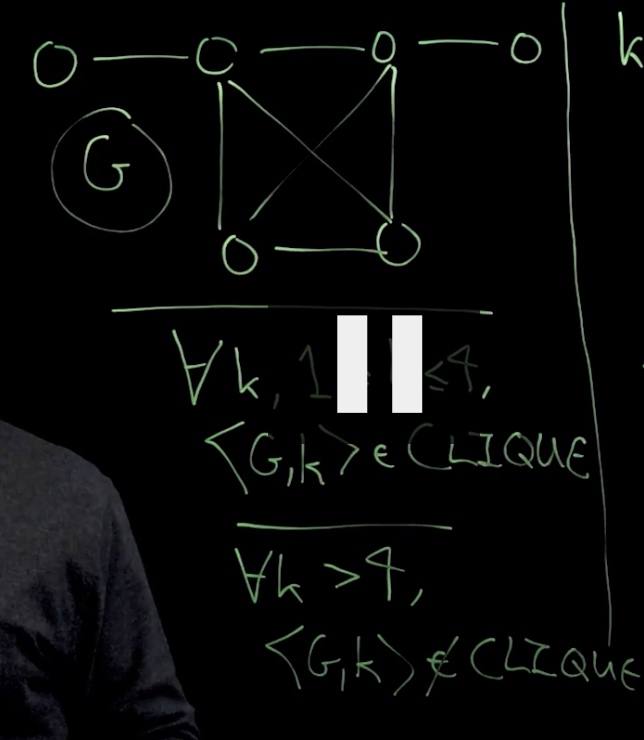 k
G
∀k, 1 ≤4,
<G,k> ∈ CLIQUE
∀k >4,
<G,k> ∉ CLIQUE